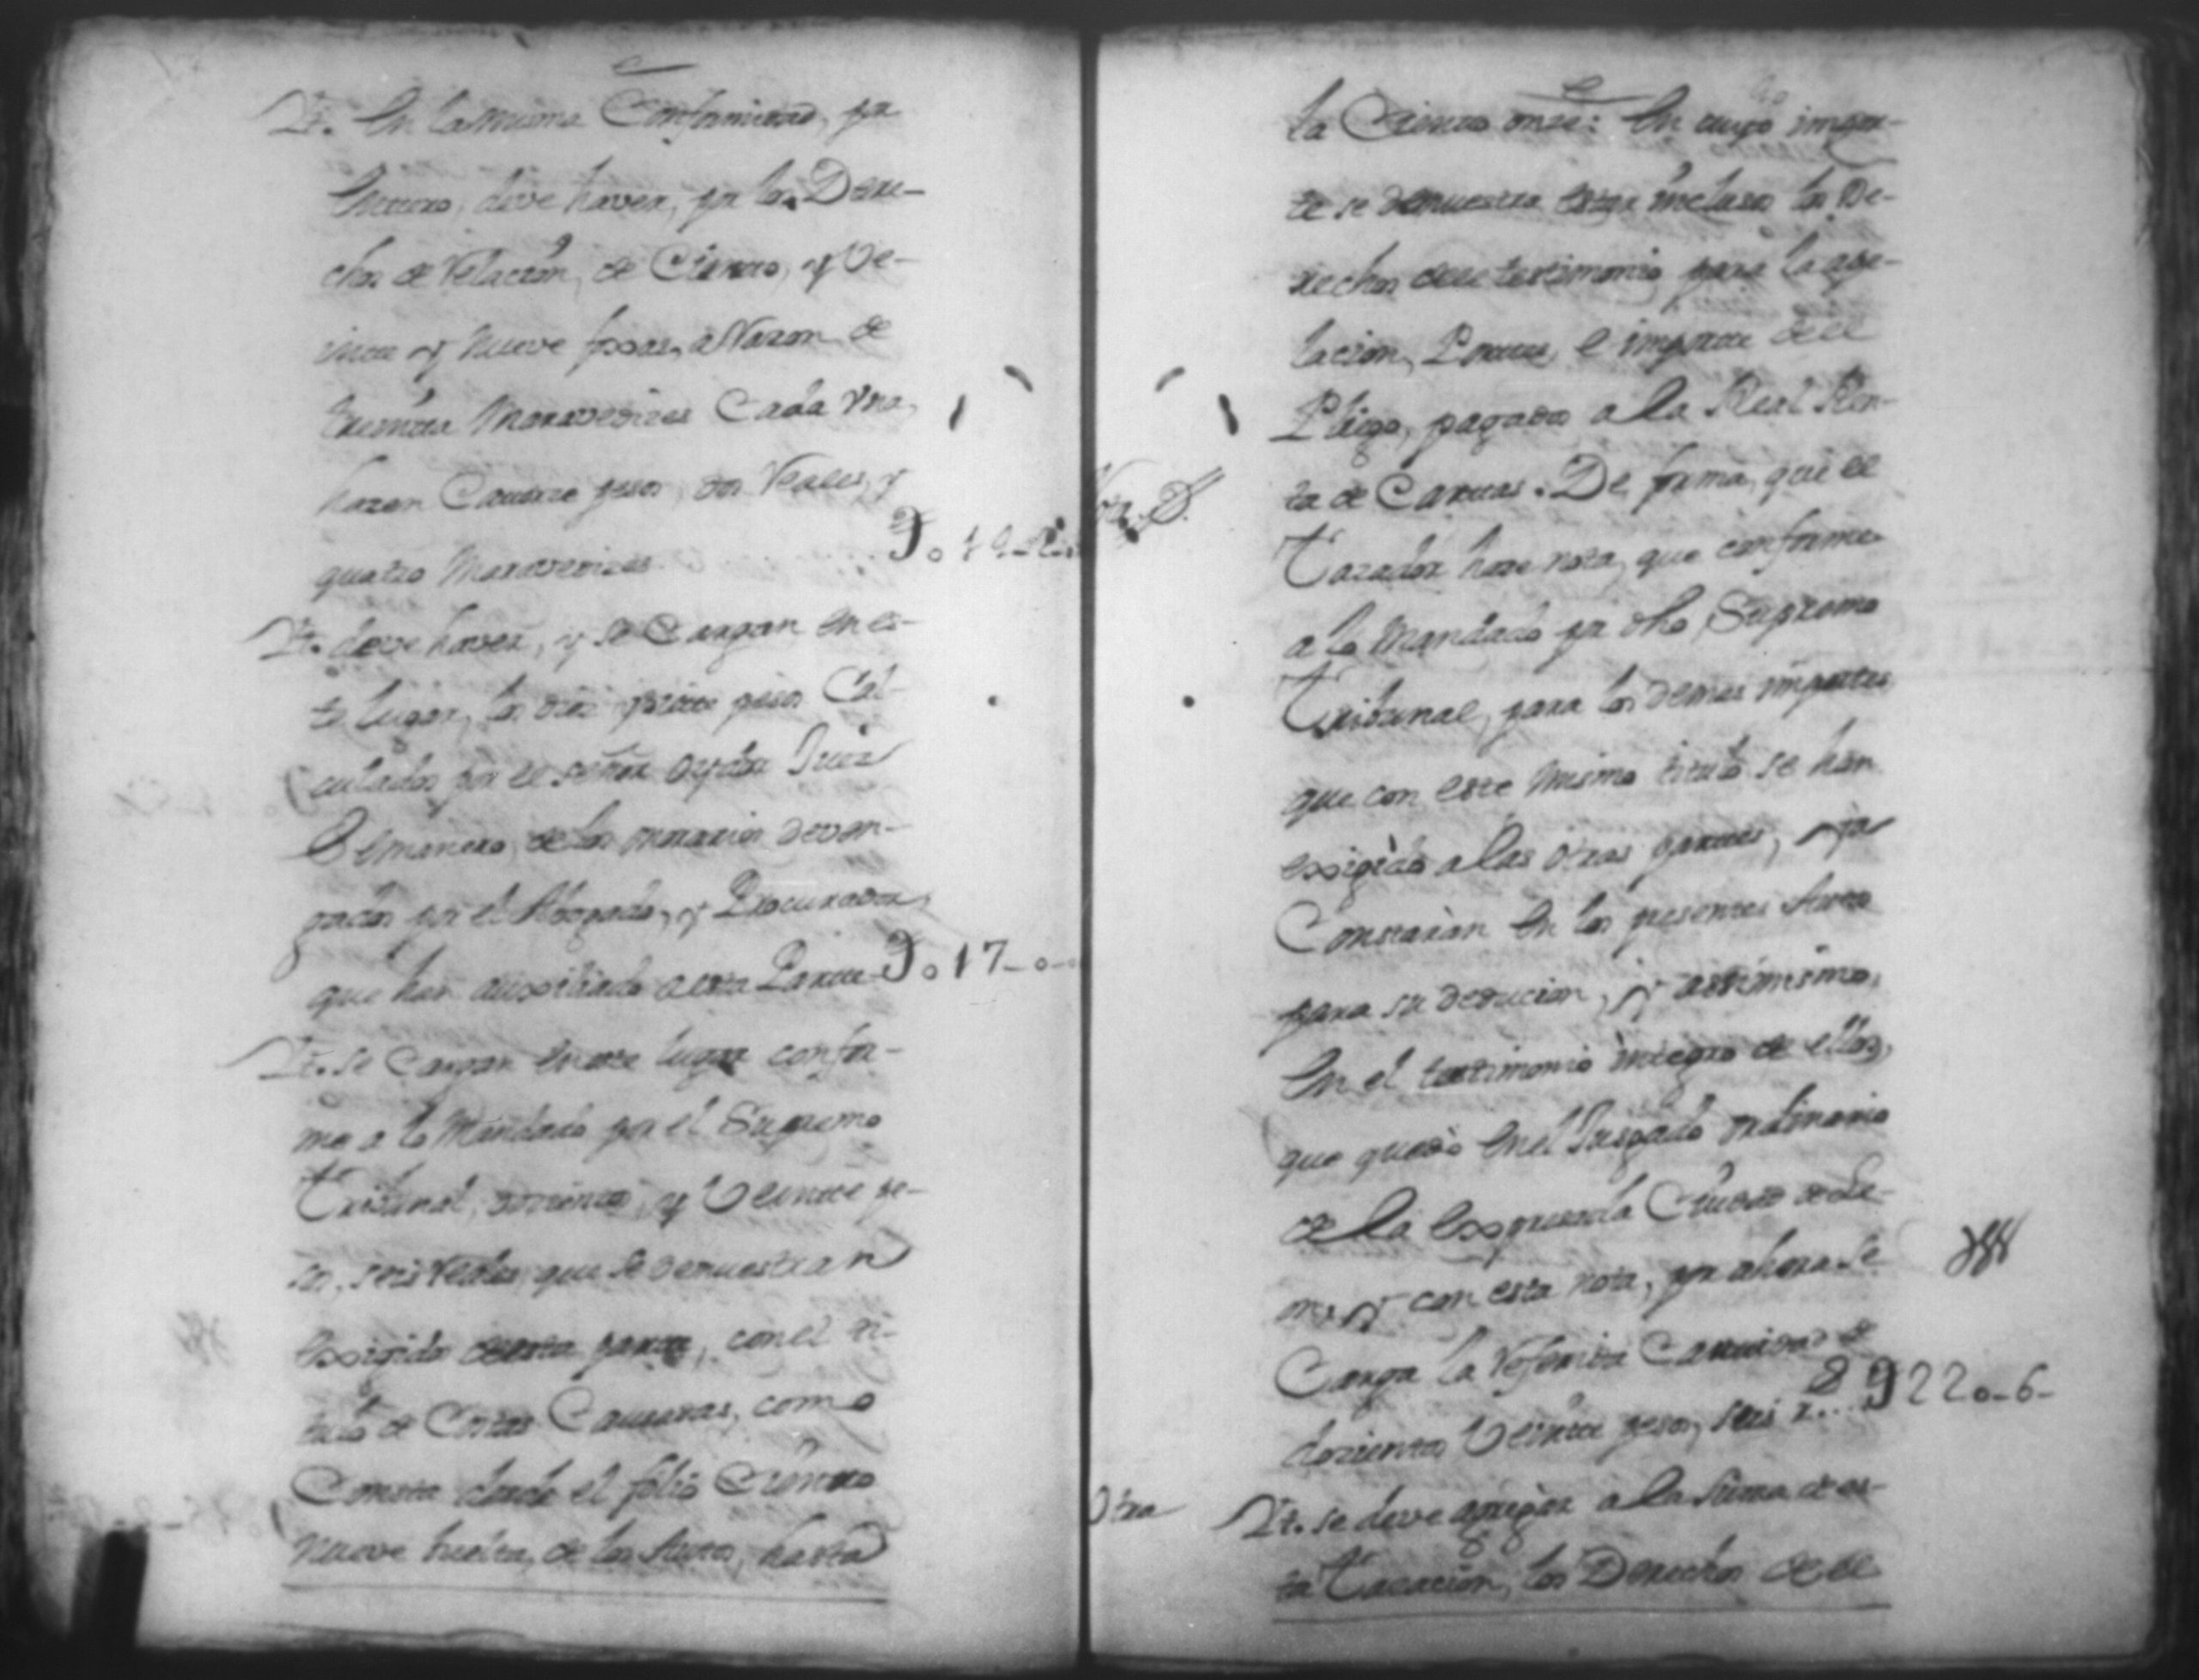 It. en la misma Conformidad, por
entero, deve haver, por los Dere-
chos de Relacion, de Ciento, y Ve-
inte y nueve foxas, a Razon de
treinta Maravedises Cada Una,
hazen Catorze pesos, dos Reales, y
quatro Maravedises
It. deve haver, y se Cargan en es-
te lugar, los diez y siete pesos Cal-
culados por el señor oydor Juez
Semanero, de los onorarios deven-
gados por el Abogado, y Procurador,
que han auxiliado a esta Parte
o17-o-
It. se Cargan en este lugar confor-
me a lo Mandado por el Supremo
Tribunal, dozientos, y Veinte pe-
sos, seis Reales, que se demuestran
exsigido de esta parte, con el ti-
tulo de Costas Causadas, como
Consta desde el folio Ciento
Nueve buelta, de los Autos, hasta
la Ciento onze: En cuyo impor-
te se demuestra estar incluso los De-
rechos de el testimonio para la ape-
lacion, Porte, e importe de el
Pliego, pagados a la Real Ren-
ta de Cartas. De forma, que el
Tazador haze nota, que conforme
a lo Mandado por dho Supremo
Tribunal, para los demas importes
que con este mismo titulo se han
exsigido a las otras partes, y ya
Constarán en los presentes Autos
para su deducion, y assimismo,
en el testimonio integro de ellos,
que quedó en el Jusgado ordinario
de la expresada Ciudad de Le-
on, y con esta nota, por ahora se
Carga la Referida Cantidad de
dozientos Veinte pesos, seis r...
220-6-
Otra
It. se deve agregar a la suma de es-
ta Tazacion, los Derechos de el